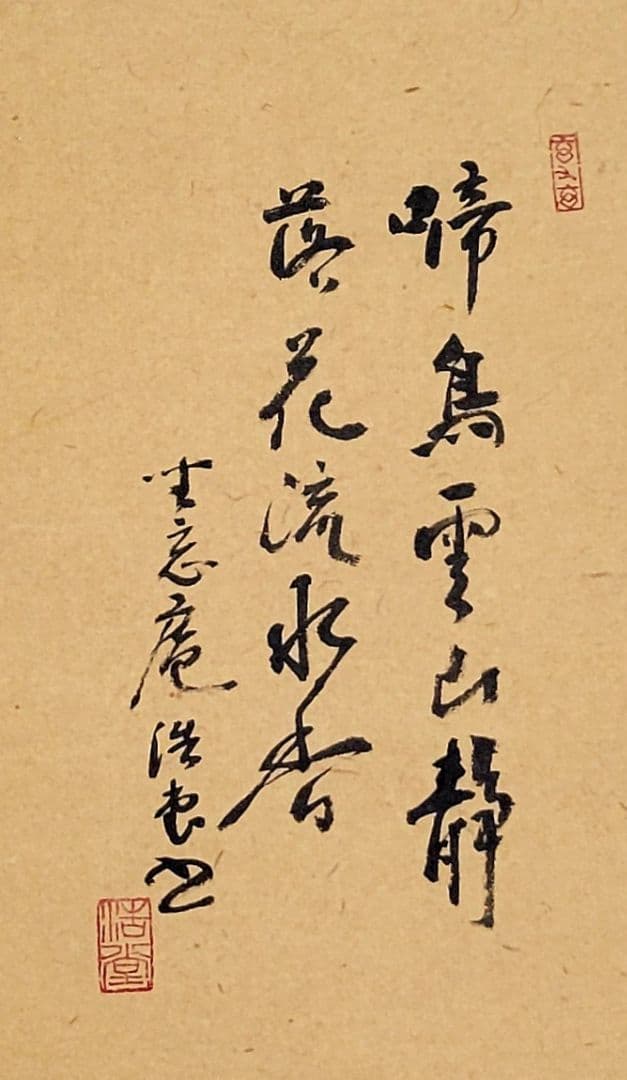 啼鳥雲山靜
落花流水香
坐忘庵浩堂書
浩堂